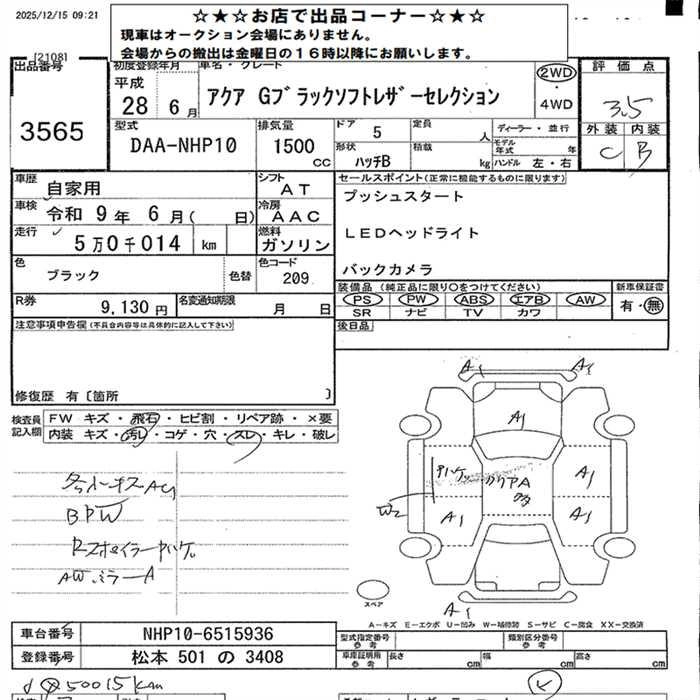 2025/12/15 09:21
☆★☆お店で出品コーナー☆★☆
現車はオークション会場にありません。
会場からの搬出は金曜日の16時以降にお願いします。
[2108]
出品番号
3565
初度登録年月
平成
28 6月
車名・グレード
アクア Gブラックソフトレザーセレクション
2WD
・
4WD
評価点
3.5
外装 内装
C B
型式
DAA-NHP10
排気量
1500
cc
ドア 5
形状
ハッチB
定員
人
積載
kg
ディーラー・並行
モデル年式 年
ハンドル 左・右
車歴
自家用
車検
令和 9年 6月( 日)
走行
5万0千014 km
シフト
AT
冷房
AAC
燃料
ガソリン
色
ブラック
色替
色コード
209
R券
9,130円
名変通知期限
月 日
セールスポイント(正常に機能するものに限ります)
プッシュスタート
LEDヘッドライト
バックカメラ
装備品(純正品に限り○をつけてください)
PS PW ABS エアB AW
SR ナビ TV カワ
新車保証書
有・無
後日品
注意事項申告欄(不具合内容等は具体的に記入して下さい)
修復歴 有〔箇所 〕
検査員
記入欄
FW キズ・飛石・ヒビ割・リペア跡・×要
内装 キズ・汚レ・コゲ・穴・スレ・キレ・破レ
BPW
AWミラーA
A1
A1
A1
A1
A1
A1
A1
W2
スペア
A1
A-キズ E-エクボ U-凹み W-補修跡 S-サビ C-腐食 XX-交換済
車台番号
NHP10-6515936
登録番号
松本 501 の 3408
型式指定番号
参考
類別区分番号
参考
車庫証明用
参考
長さ cm
幅 cm
高さ cm
50015km